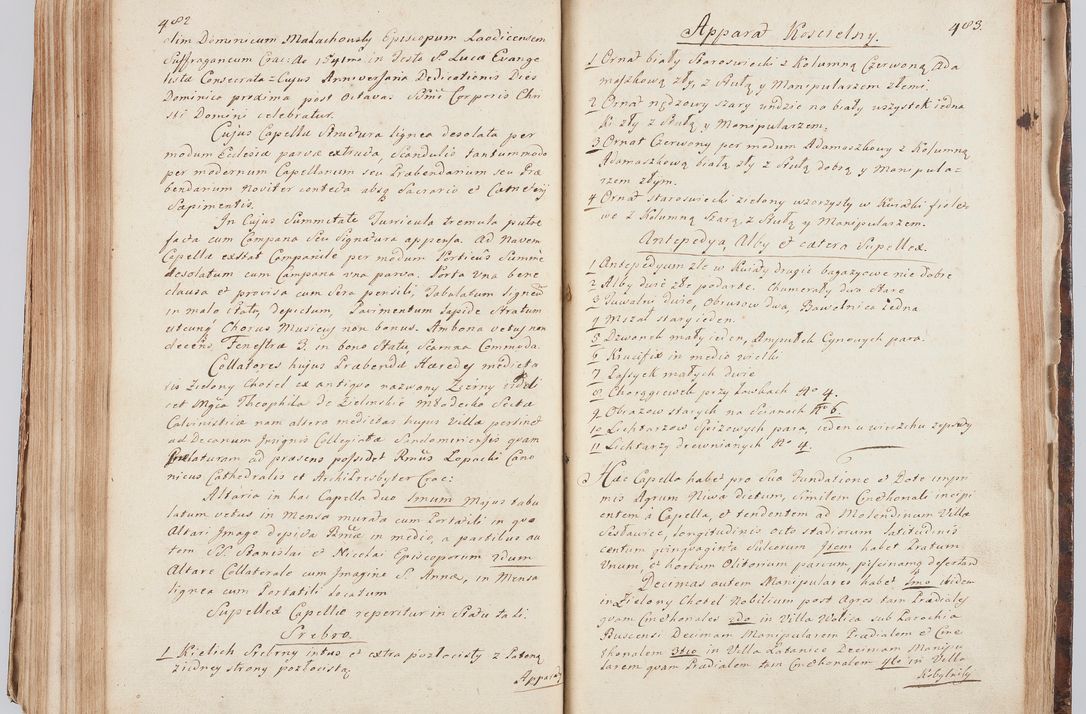 482
olim Dominicum Małachowsky Episcopum Laodicensem
Suffraganeum Crac: Ao 1591mo in Festo S. Lucæ Evange
listæ Consecrata = Cujus Anniversaria Dedicationis Dies
Dominica proxima post Octavas SSmi Corporis Chri
sti Domini celebratur.
Cujus Capellæ Structura lignea desolata per
modum Ecclesiæ parvæ extructa, Scandulis tantummodo
per modernum Capellanum seu Præbendarium seu Præ
bendarium Noviter contecta absq Sacrario et Cæmeterij
Sapimentis.
In Cujus Summitate Turricula tremula putre
facta cum Campana Seu Signatura appensa. Ad Navem
Capellæ exstat Campanile per modum Porticus Summe
desolatum cum Campana una parva. Porta Una bene
clausa et provisa cum Sera pensili, Tabulatum ligneū
in malo statu, depictum, Pavimentum lapide Stratum
utcunq Chorus Musicus non bonus. Ambona vetus non
decens, Fenestræ 3. in bono Statu, Scamna Commoda.
Collatores hujus Præbendæ Hæredes medieta
tis Zielony Chotel ex antiquo nazwany Zizny videli
cet Mgca Theophila de Zielinskie Młodecka Sectæ
Calvinisticæ nam altera medietas hujus Villæ pertinet
ad Decanum Insignis Collegiatæ Sandomiriensis quam
Prælaturam ad præsens possidet Rmus Łopacki Cano
nicus Cathedralis et ArchiPresbyter Crac:
Altaria in hac Capella duo 1mum Majus tabu
latum vetus in Mensa murata cum Portatili in quo
Altari Imago depicta BMæ in medio, a partibus au
tem SS. Stanislai et Nicolai Episcoporum 2dum
Altare Collaterale cum Imagine S. Annæ, in Mensa
lignea cum Portatili locatum
Supellex Capellæ reperitur in Statu tali.
Srebro.
1 Kielich Srebrny intus et extra pozłocisty z Pateną
z iedney strony pozłocistą
Apparat
Apparat Koscielny. 483.
1 Ornat biały Staroswiecki z Kolumną Czerwoną Ada
maszkową zły, z Stułą y Manipularzem złemi.
2 Ornat nędzowy szary indzie na biały wszystek iedna
k zły z Stułą y Manipularzem.
3 Ornat Czerwony per modum Adamaszkowy z Kolumną
Adamaszkową białą zły z Stułą dobrą y Manipula=
rzem złym.
4 Ornat Staroswiecki zielony wzorzysty w Kwiatki fiole
we z Kolumną Szarą, z Stułą y Manipularzem.
Antepedya, Alby et cætera Supellex.
1 Antepedyum złe w Kwiaty drugie bagazyowe nie dobre
2 Alby dwie złe podarte. Humerały dwa Stare
3 Tuwalni dwie, Obrusow dwa, Bawełnica iedna
4 Mszał stary ieden.
5 Dzwonek mały ieden, Ampułek Cynowych para.
6 Krucifix in medio wielki
7 Pasyek małych dwie
8 Chorągiewek przy Ławkach No 4.
9 Obrazow starych na Scianach No 6.
10 Lichtarzow Spizowych para, ieden u wierzchu zepsuty
11 Lichtarzy drewnianych No 4
Hæc Capella habet pro Sua Fundatione et Dote inpri
mis Agrum Niwa dictum, Similem Cmethonali incipi
entem à Capella, et tendentem ad Molendinum Villæ
Sesławice, longitudinis octo stadiorum latitudinis
centum quinquaginta Sulcorum Item habet Pratum
Unum, et hortum Olitorium parvum, piscinam desertam
Decimas autem Manipulares habet 1mo ibidem
in Zielony Chotel Nobilium post Agros tam Prædiales
quam Cmethonales 2do in Villa Wolica sub Parochia
Buscensi Decimam Manipularem Prædialem et Cme
thonalem 3tio in Villa Łatanice Decimam Manipu
larem quam Prædialem tam Cmethonalem 4to in Villa
Kobylniki